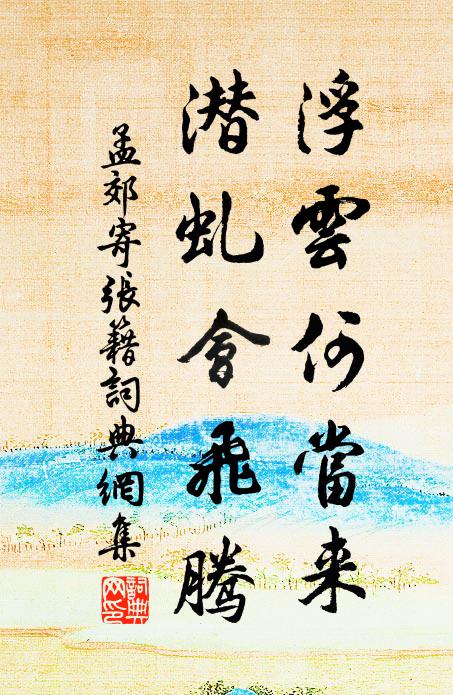 浮雲何當来
潜虬會飛騰
孟郊寄張籍詞典網集
詞典网印